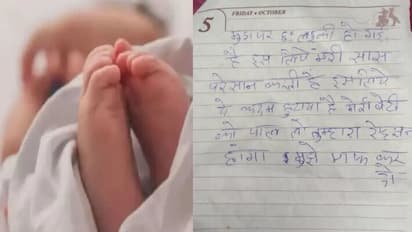 5 FRIDAY • OCTOBER
पर छ: लड़की हो गई
है इस लिये मेरी सास
परेसान करती है इसलिये
ये कदम है मेरी बेटी
को पाल लो तुम्हारा
होगा मुझे माफ कर